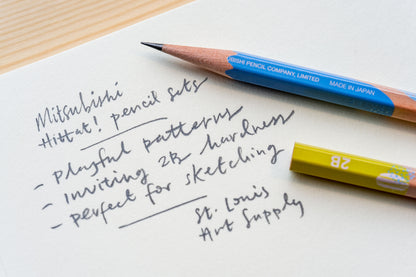 BISHI PENCIL COMPANY, LIMITED MADE IN JAPAN
Mitsubishi
Hittat! pencil sets
- playful patterns
- inviting 2B hardness
- perfect for sketching
2B
St. Louis
Art Supply